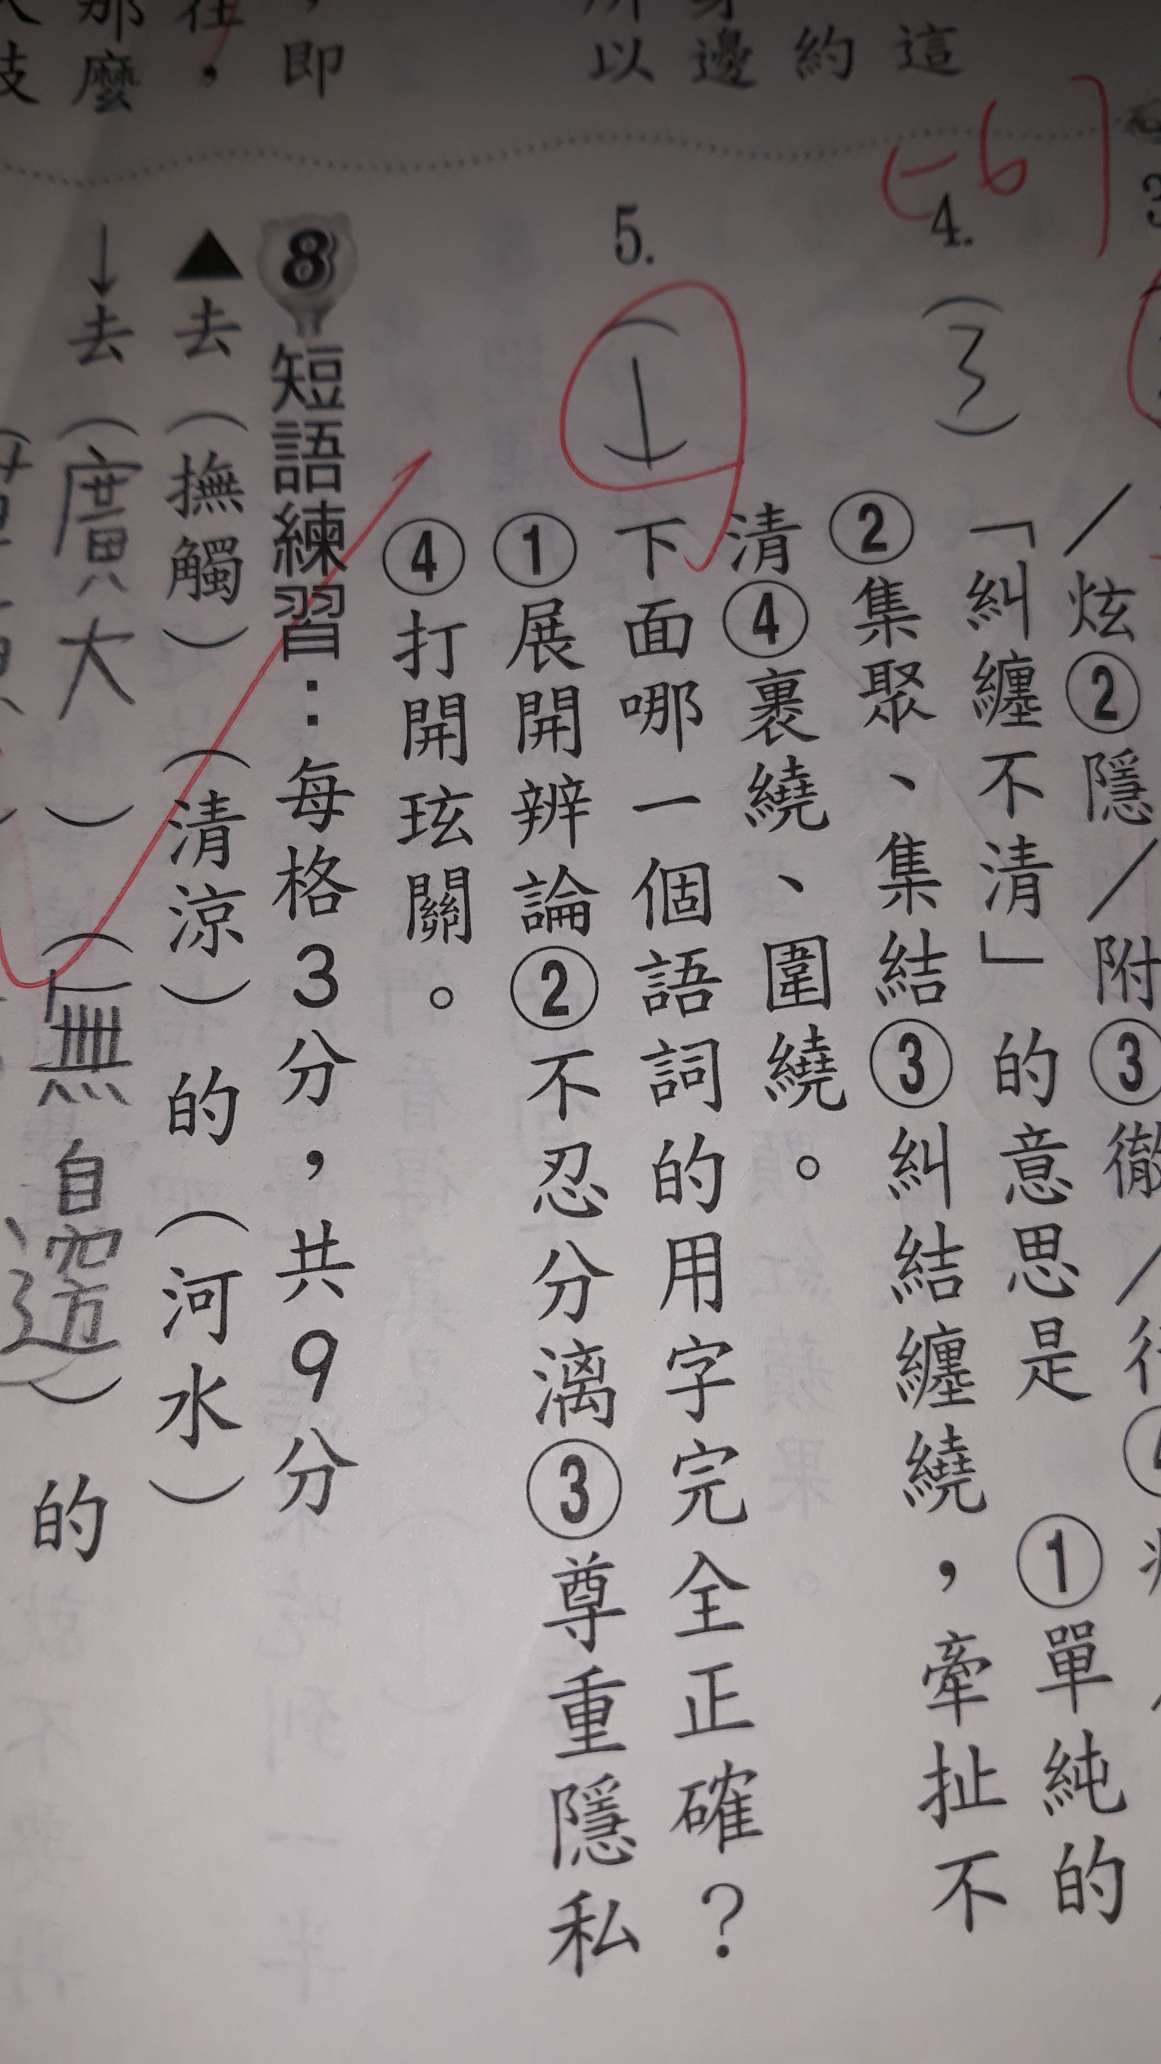 這
約
身邊
所以
，即
在，
那麼
技
(-6
3
／炫②隱／附③徹／行④
4.（3）「糾纏不清」的意思是 ①單純的
②集聚、集結③糾結纏繞，牽扯不
清④裹繞、圍繞。
5.（1）下面哪一個語詞的用字完全正確？
①展開辨論②不忍分漓③尊重隱私
④打開玹關。
8 短語練習：每格3分，共9分
▲去（撫觸）（清涼）的（河水）
↓去（廣大）（無邊）的